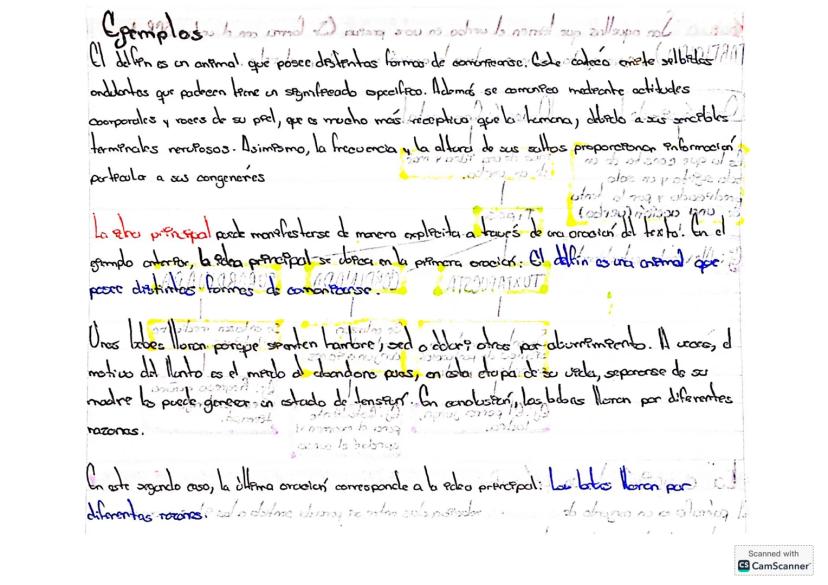 Ejemplos
El delfín es un animal que posee distintas formas de comunicarse. Este cetáceo emite silbidos
ondulantes que parecen tiene un significado específico. Además se comunica mediante actitudes
corporales y roces de su piel, que es mucho más receptiva que la humana, debido a sus sencibles
terminales nerviosos. Asimismo, la frecuencia y la altura de sus saltos proporcionan información
particular a sus congeneres
La idea principal puede manifestarse de manera explícita a través de una oración del texto. En el
ejemplo anterior, la idea principal se ubica en la primera oración: El delfín es una animal que
posee distintas formas de comunicarse.
Unos bebes lloran porque sienten hambre, sed o dolor; otros por aburrimiento. A veces, el
motivo del llanto es el miedo al abandono pues, en esta etapa de su vida, separarse de su
madre lo puede generar un estado de tensión. En conclusión, los bebes lloran por diferentes
razones.
En este segundo caso, la última oración corresponde a la idea principal: Los bebes lloran por
diferentes razones.
Scanned with
CS CamScanner